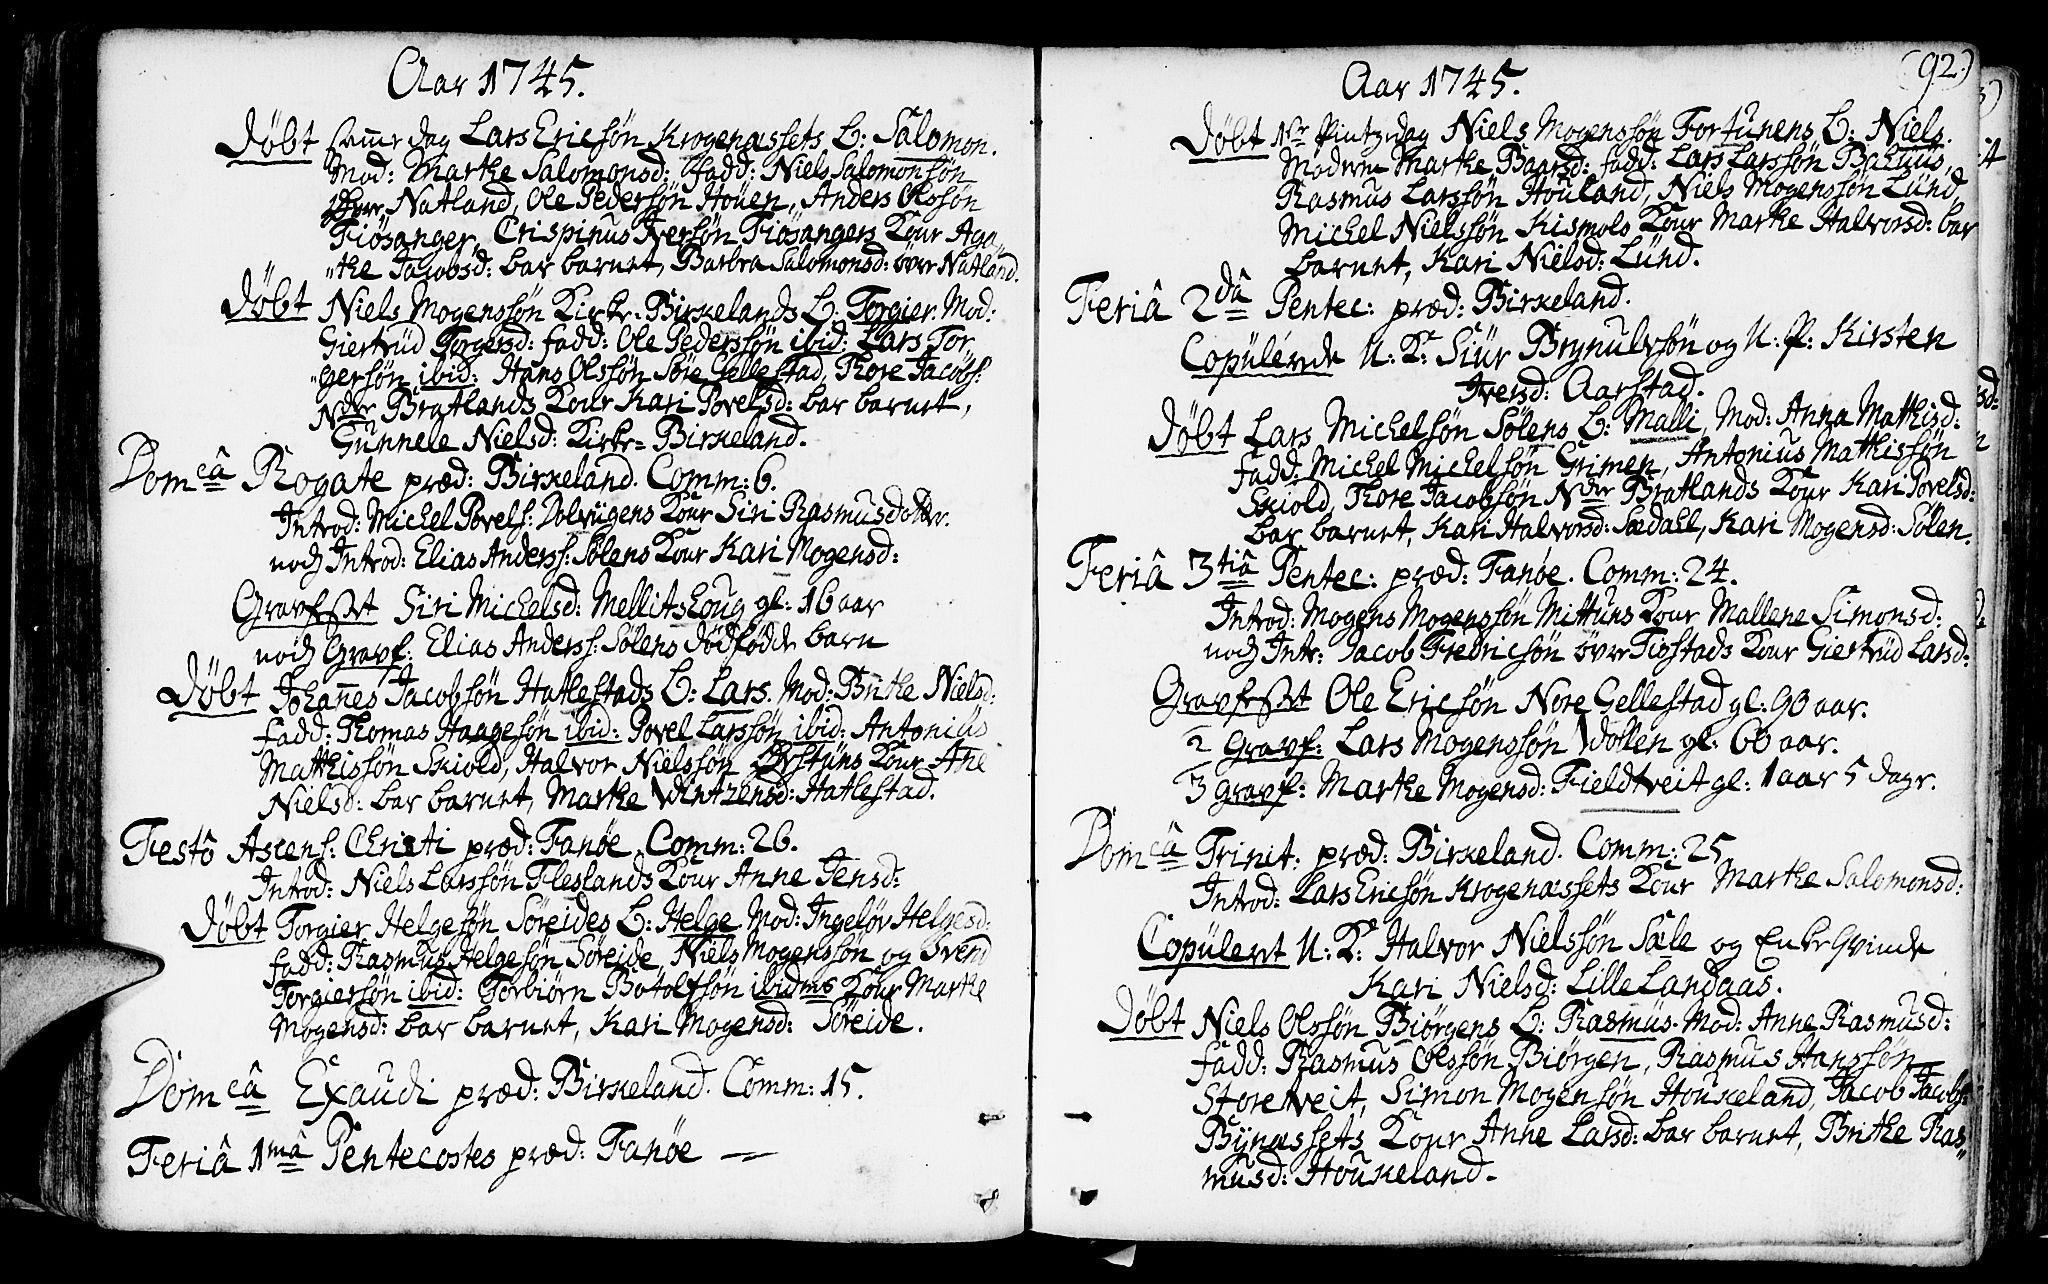 Aar 1745.
Døbt samme dag Lars Ericsøn Krogenæssets B: Salomon.
Mod: Marthe Salomonsd: fadd: Niels Salomonsøn
Natland, Ole Pedersøn Houen, Anders Olssøn
Fiösanger, Crispinus Iversøn Fiösangers Kone Aga„
„the Jacobsd: bar barnet, Barbra Salomonsd: övre Natland.
Døbt Niels Mogenssøn Kirke-Birkelands B: Torgier. Mod:
Giertrüd Torgersd: fadd: Ole Pederssøn ibid: Lars Tor„
„gersøn ibid: Hans Olssøn Søre Gellestad, Thore Jacobs:
Nder Bratlands Kone Kari Povelsd: bar barnet,
Gunnele Nielsd: Kirke-Birkeland.
Domcâ Rogate præd: Birkeland. Comm: 6.
Introd: Michel Povels: Dolvigens Kone Siri Rasmusdotter.
noch Introd: Elias Anderss: Sølens Kone Kari Mogensd:
Gravfestet Siri Michelsd: Mellitshoug gl: 16 aar
noch Gravf: Elias Anderss: Sølens dödfödde barn
Døbt Johannes Jacobsøn Hatlestads B: Lars. Mod: Brithe Nielsd:
fadd: Thomas Haagesøn ibid: Povel Larssøn ibid: Antonius
Matthissøn Skiold, Halvor Nielssøn Kone Ane
Nielsd: bar barnet, Marthe Wintzensd: Hatlestad.
Festô Ascens: Christi præd: Fanøe. Comm: 26.
Introd: Niels Larssøn Fleslands Kone Anne Jensd:
Døbt Torgier Helgesøn Søreides B: Helge. Mod: Ingeløv Helgesd:
fadd: Rasmus Helgesøn Søreide, Niels Mogenssøn og Svend
Torgiersøn ibid: Torbiørn Botolfsøn ibidms Kone Marthe
Mogensd: bar barnet, Kari Mogensd: Søreide.
Domcâ Exaudi præd: Birkeland. Comm: 15.
Feriâ 1mâ Pentecostes præd: Fanøe —
(92.)
Aar 1745.
Døbt 1ste Pintzedag Niels Mogenssøn Fortunens B: Niels.
Modren Marthe Baarsd: fadd: Lars Larssøn
Rasmus Larssøn Houland, Niels Mogenssøn Lund,
Michel Nielssøn Kismols Kone Marthe Halvorsd: bar
barnet, Kari Nielsd: Lund.
Feriâ 2dâ Pentec: præd: Birkeland.
Copulerede U: K: Siur Brynulvsøn og U: P: Kirsten
Iversd: Aarstad.
Døbt Lars Michelsøn Sølens B: Malli, Mod: Anna Mathisd:
fadd: Michel Michelsøn Grimen, Antonius Mathissøn
Skiold, Thore Jacobsøn Nder Bratlands Kone Kari Povelsd:
bar barnet, Kari Halvorsd: Sædahl, Kari Mogensd: Sølen.
Feriâ 3tiâ Pentec: præd: Fanøe. Comm: 24.
Introd: Mogens Mogenssøn Mittuns Kone Mallene Simonsd:
noch Intr: Jacob Fredricsøn övre Tistads Kone Giertrüd Larsd:
Gravfestet Ole Ericsøn Nore Gellestad gl: 90 aar.
2 Gravf: Lars Mogenssøn Wollen gl: 60 aar.
3 Gravf: Marthe Mogensd: Fieldtveit gl: 1 aar 5 dage.
Domcâ Trinit: præd: Birkeland. Comm: 25
Introd: Lars Ericsøn Krogenæssets Kone Marthe Salomonsd:
Copuleret U: K: Halvor Nielssøn Sæle og Enke Qvinde
Kari Nielsd: Lille Landaas.
Døbt Niels Olssøn Biørgens B: Rasmus. Mod: Anne Rasmusd:
fadd: Rasmus Olssøn Biørgen, Rasmus Hanssøn
Storetveit, Simon Mogensøn Houkeland, Jacob Jacobs:
Bynæssets Kone Anne Larsd: bar barnet, Brithe Ras„
musd: Houkeland.